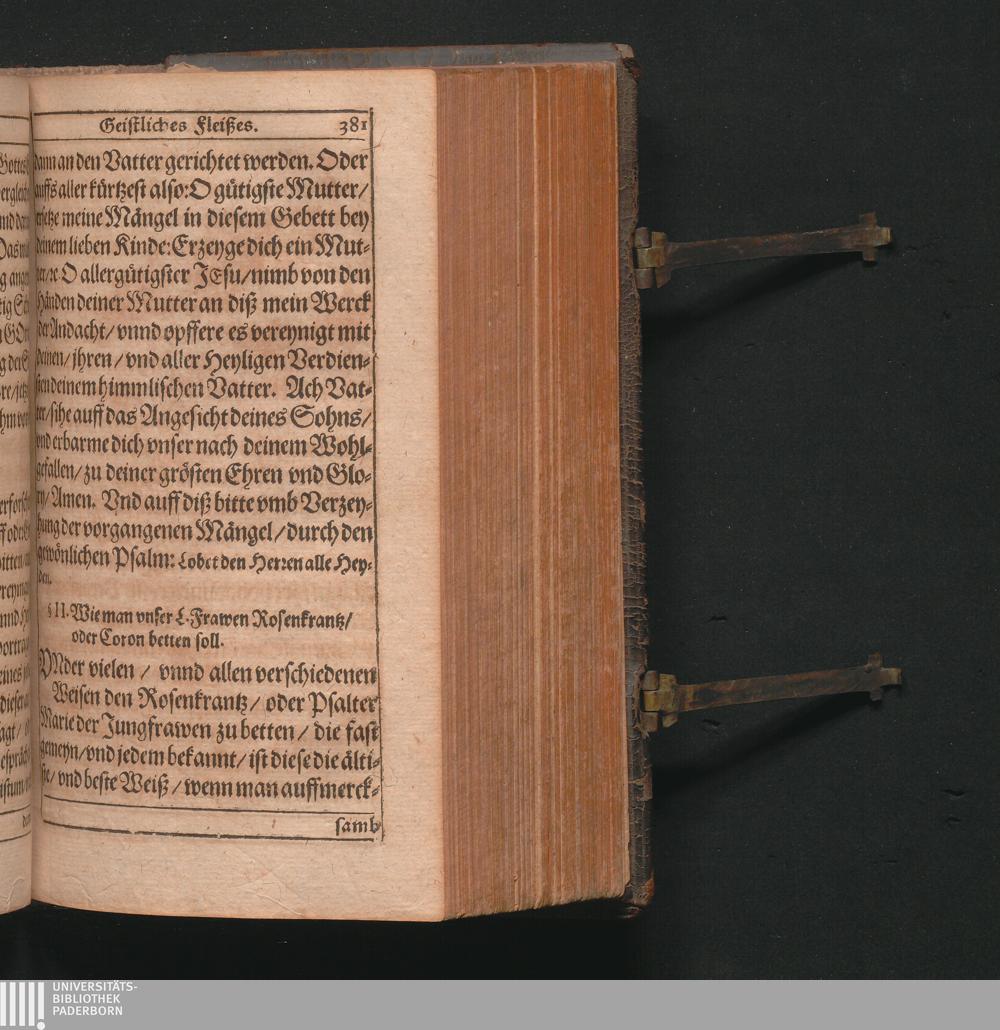 Geistliches Fleißes. 381
dann an den Vatter gerichtet werden. Oder
auffs aller kürtzest also: O gütigste Mutter/
ersetze meine Mängel in diesem Gebett bey
deinem lieben Kinde: Erzeyge dich ein Mut-
ter/ꝛc. O allergütigster JEsu/nimb von den
Händen deiner Mutter an diß mein Werck
der Andacht/ vnnd opffere es vereynigt mit
deinen/ jhren /vnd aller Heyligen Verdien-
sten deinem himmlischen Vatter. Ach Vat-
ter/sihe auff das Angesicht deines Sohns/
vnd erbarme dich vnser nach deinem Wohl-
gefallen/ zu deiner grösten Ehren vnd Glo-
ry/ Amen. Vnd auff diß bitte vmb Verzey-
hung der vorgangenen Mängel/durch den
gewönlichen Psalm: Lobet den Herren alle Hey-
den.
§ II. Wie man vnser L. Frawen Rosenkrantz/
oder Coron betten soll.
VNder vielen / vnnd allen verschiedenen
Weisen den Rosenkrantz/ oder Psalter
Marie der Jungfrawen zu betten/ die fast
gemeyn/vnd jedem bekannt/ ist diese die älti-
ste/ vnd beste Weiß /wenn man auffmerck-
samb
UNIVERSITÄTS-
BIBLIOTHEK
PADERBORN